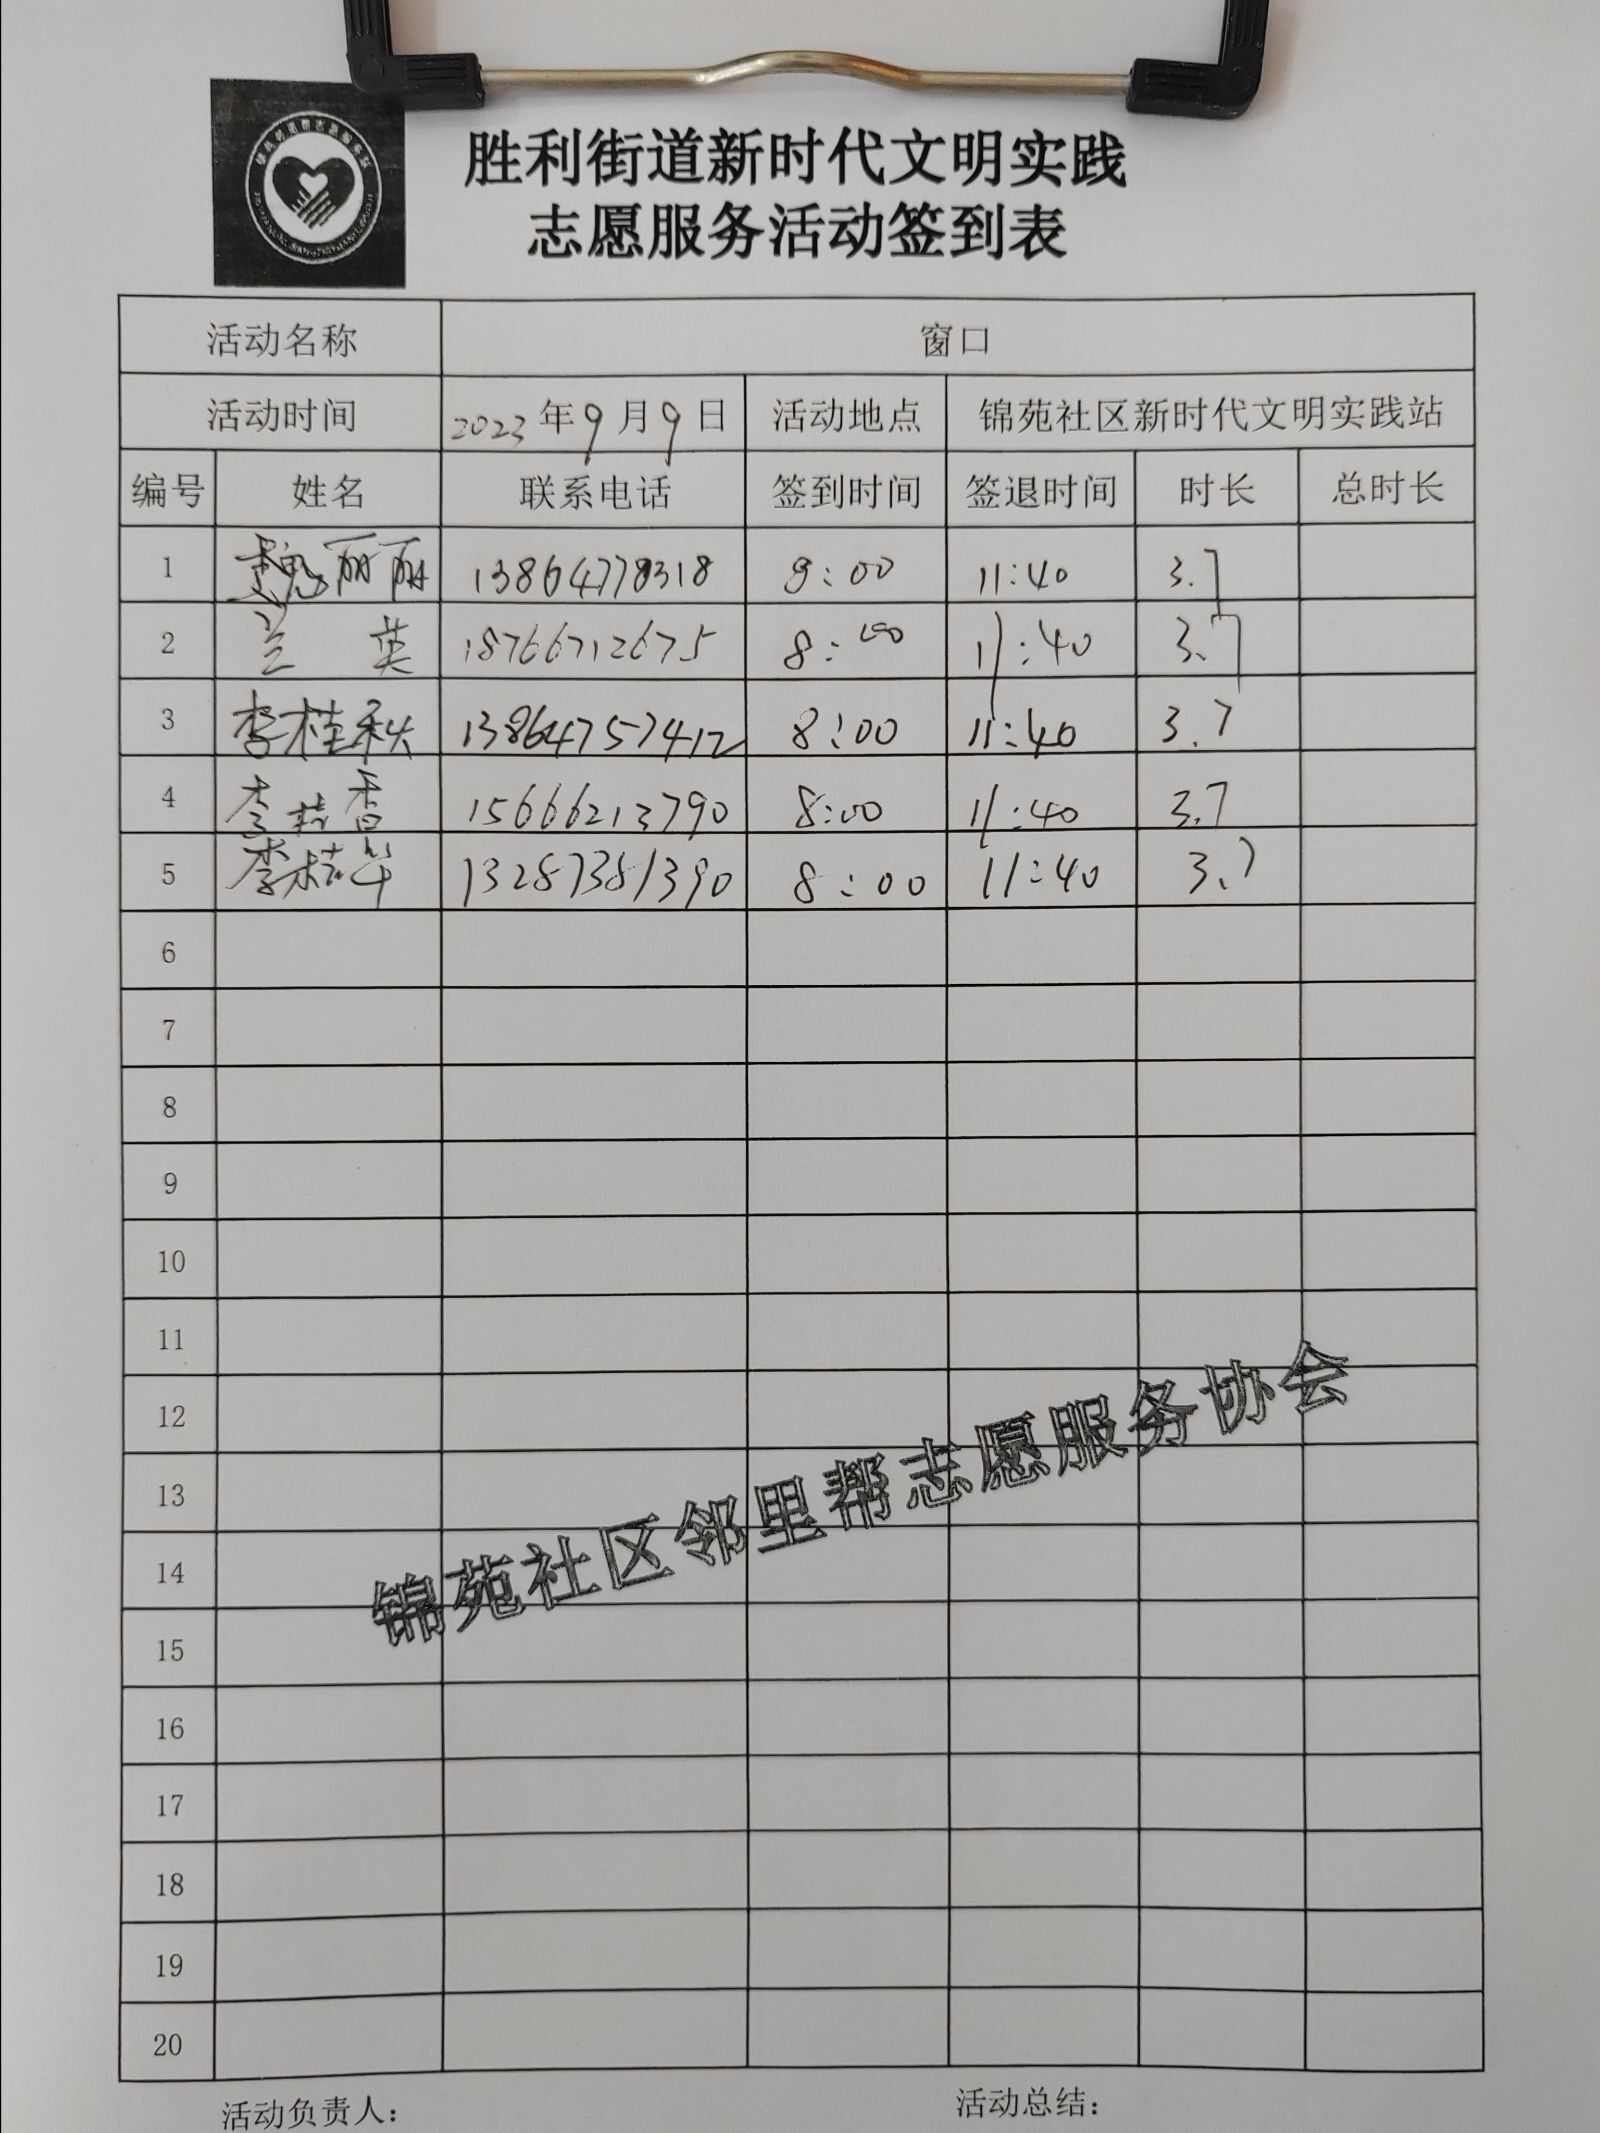 胜利街道新时代文明实践
志愿服务活动签到表
活动名称 窗口
活动时间 2023年9月9日 活动地点 锦苑社区新时代文明实践站
编号 姓名 联系电话 签到时间 签退时间 时长 总时长
1 魏丽丽 13864778318 8:00 11:40 3.7
2 兰英 18766712675 8:00 11:40 3.7
3 李桂秋 13864757412 8:00 11:40 3.7
4 李桂香 15666213790 8:00 11:40 3.7
5 李桂华 13287381390 8:00 11:40 3.7
6
7
8
9
10
11
12
13
14
15
16
17
18
19
20
锦苑社区邻里帮志愿服务协会
活动负责人： 活动总结：